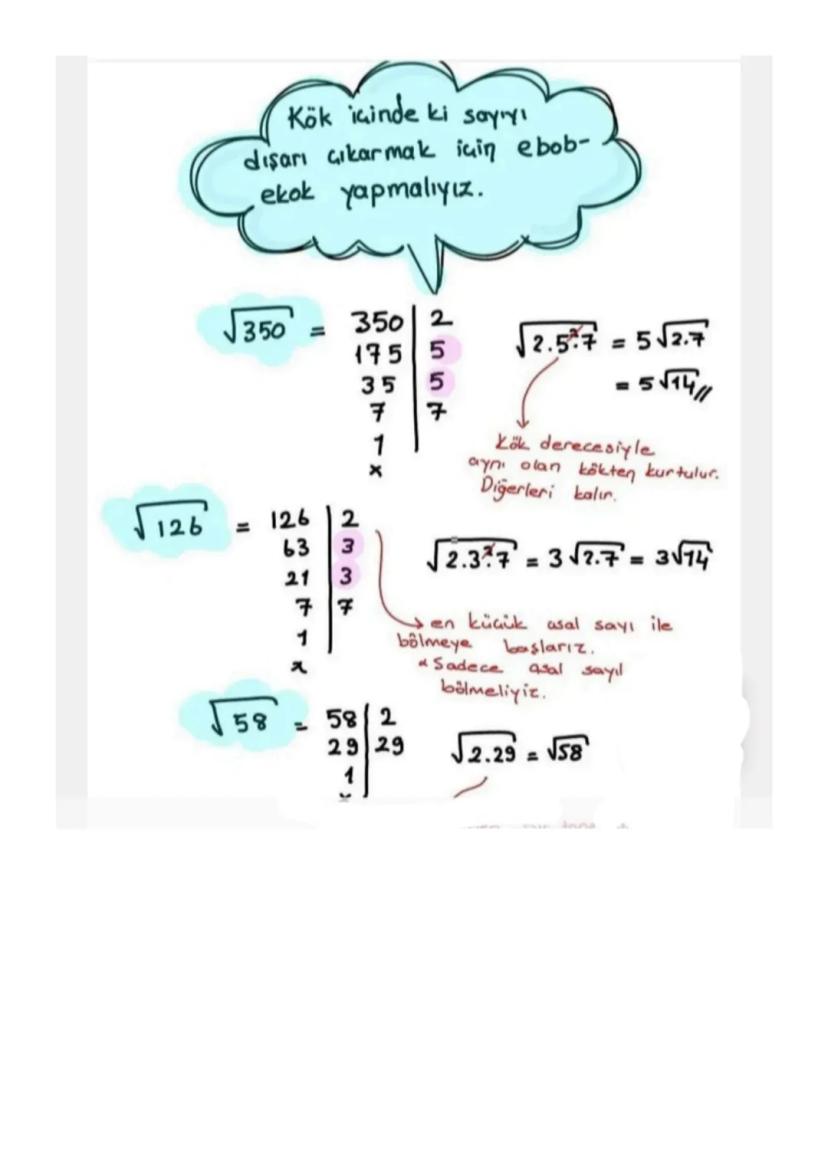 Kök içinde ki sayıyı
dışarı çıkarmak için ebob-
ekok yapmalıyız.
√350 =
350 | 2
175 | 5
35 | 5
7 | 7
1
x
√2.5².7 = 5√2.7
= 5√14//
Kök derecesiyle
aynı olan kökten kurtulur.
Diğerleri kalır.
√126 =
126 | 2
63 | 3
21 | 3
7 | 7
1
x
√2.3².7 = 3√2.7 = 3√14
en küçük asal sayı ile
bölmeye başlarız.
* Sadece asal sayıl
bölmeliyiz.
√58 =
58 | 2
29 | 29
1
√2.29 = √58